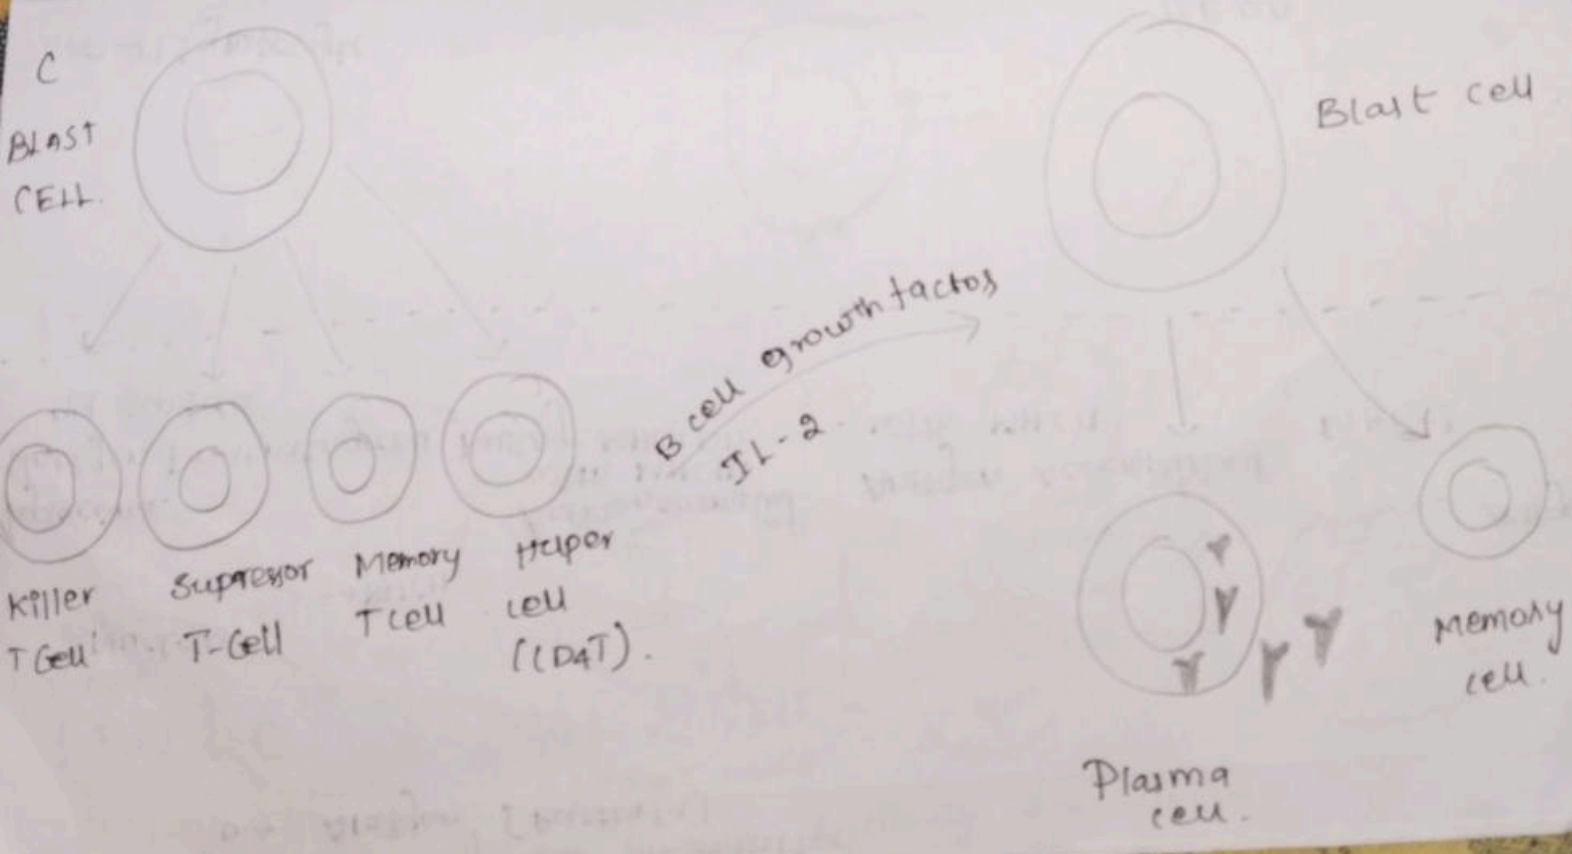 C
BLAST
CELL.
Blast cell
B cell growth factos
IL-2
Killer
T Cell
Supressor
T-Cell
Memory
T cell
Helper
cell
(CD4T).
Plasma
cell.
Memory
cell.